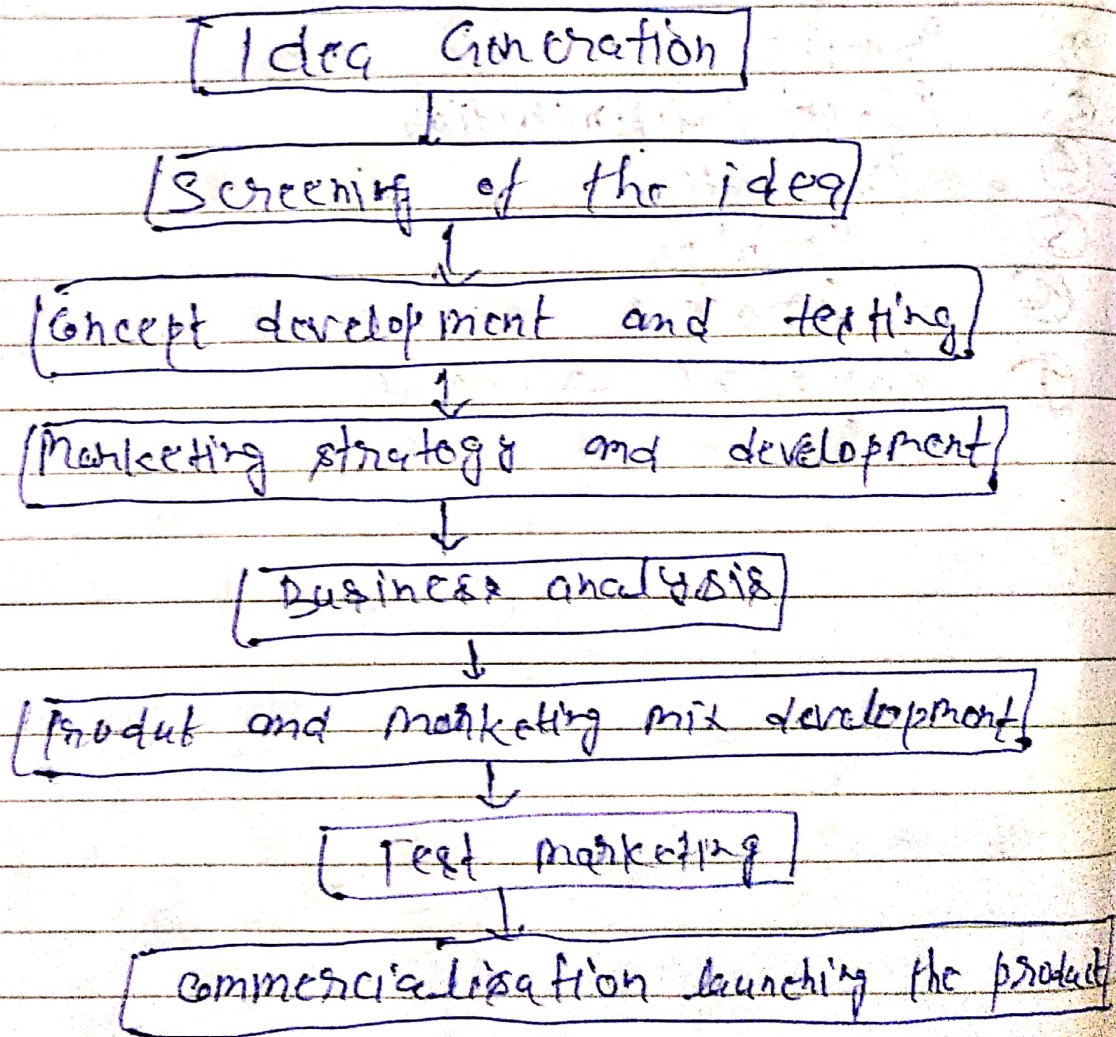 Idea Generation
Screening of the idea
Concept development and testing
Marketing strategy and development
Business analysis
Produt and marketing mix development
Test marketing
Commercialisation launching the product